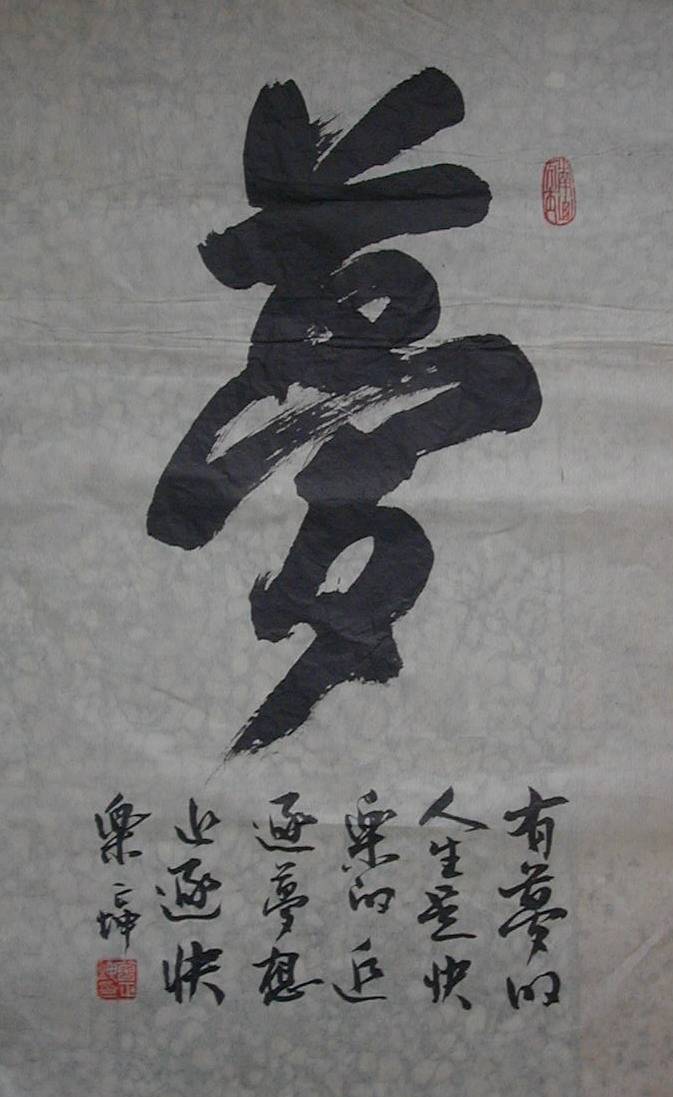 夢
有夢的
人生是快
樂的追
逐夢想
也逐快
樂